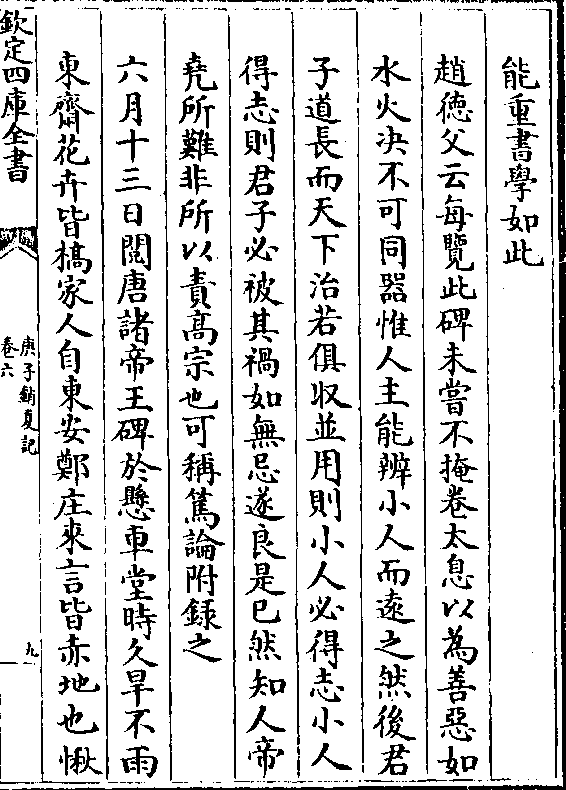 能重書學如此
趙徳父云每覽此碑未嘗不掩卷太息以為善惡如
水火决不可同器惟人主能辨小人而遠之然後君
子道長而天下治若俱收並用則小人必得志小人
得志則君子必被其禍如無忌遂良是已然知人帝
堯所難非所以責髙宗也可稱篤論附録之
六月十三日閲唐諸帝王碑於懸車堂時久旱不雨
東齋花卉皆槁家人自東安鄭庄來言皆赤地也愀
欽定四庫全書
庚子銷夏記
卷六
九